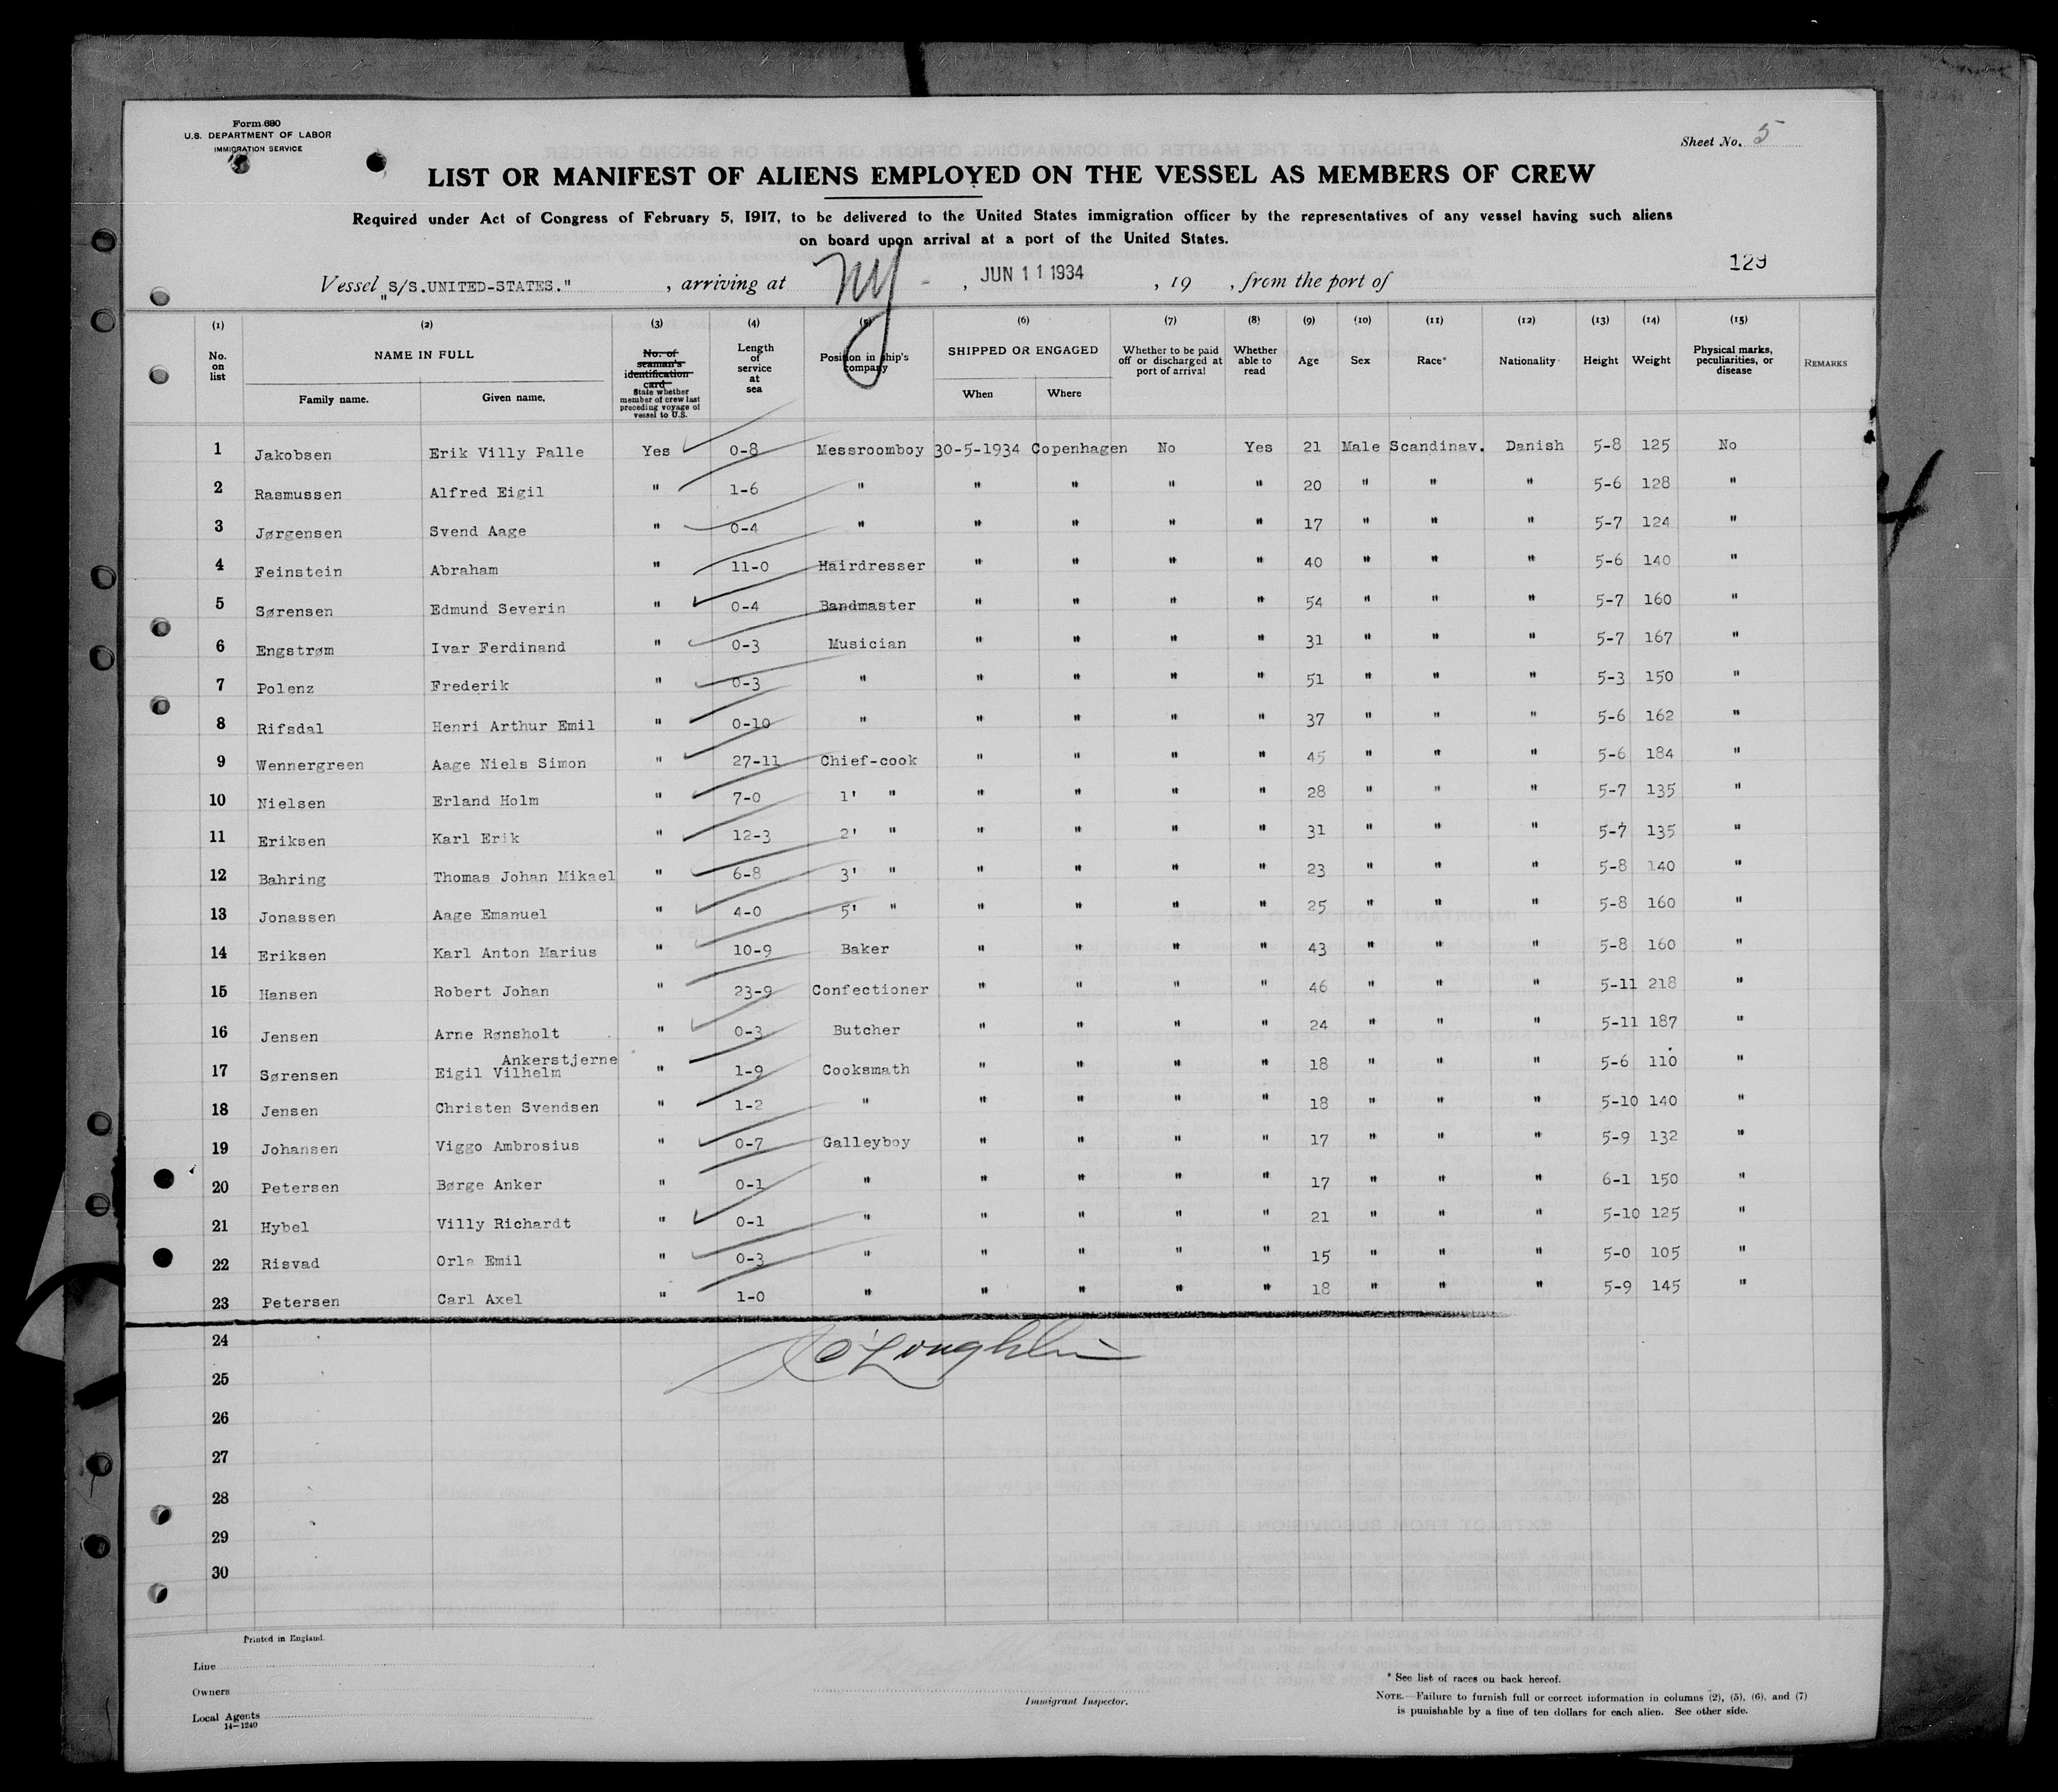 Form 680
U.S. DEPARTMENT OF LABOR
IMMIGRATION SERVICE
Sheet No. 5
LIST OR MANIFEST OF ALIENS EMPLOYED ON THE VESSEL AS MEMBERS OF CREW
Required under Act of Congress of February 5, 1917, to be delivered to the United States immigration officer by the representatives of any vessel having such aliens
on board upon arrival at a port of the United States.
129
Vessel "S/S.UNITED-STATES." , arriving at NY - , JUN 11 1934 , 19 , from the port of
(1) (2) (3) (4) (5) (6) (7) (8) (9) (10) (11) (12) (13) (14) (15)
No. on list NAME IN FULL Family name. Given name. No. of seaman's identification card State whether member of crew last preceding voyage of vessel to U.S. Length of service at sea Position in ship's company SHIPPED OR ENGAGED When Where Whether to be paid off or discharged at port of arrival Whether able to read Age Sex Race* Nationality Height Weight Physical marks, peculiarities, or disease REMARKS
1 Jakobsen Erik Villy Palle Yes 0-8 Messroomboy 30-5-1934 Copenhagen No Yes 21 Male Scandinav. Danish 5-8 125 No
2 Rasmussen Alfred Eigil " 1-6 " " " " " 20 " " " 5-6 128 "
3 Jørgensen Svend Aage " 0-4 " " " " " 17 " " " 5-7 124 "
4 Feinstein Abraham " 11-0 Hairdresser " " " " 40 " " " 5-6 140 "
5 Sørensen Edmund Severin " 0-4 Bandmaster " " " " 54 " " " 5-7 160 "
6 Engstrøm Ivar Ferdinand " 0-3 Musician " " " " 31 " " " 5-7 167 "
7 Polenz Frederik " 0-3 " " " " " 51 " " " 5-3 150 "
8 Rifsdal Henri Arthur Emil " 0-10 " " " " " 37 " " " 5-6 162 "
9 Wennergreen Aage Niels Simon " 27-11 Chief-cook " " " " 45 " " " 5-6 184 "
10 Nielsen Erland Holm " 7-0 1' " " " " " 28 " " " 5-7 135 "
11 Eriksen Karl Erik " 12-3 2' " " " " " 31 " " " 5-7 135 "
12 Bahring Thomas Johan Mikael " 6-8 3' " " " " " 23 " " " 5-8 140 "
13 Jonassen Aage Emanuel " 4-0 5' " " " " " 25 " " " 5-8 160 "
14 Eriksen Karl Anton Marius " 10-9 Baker " " " " 43 " " " 5-8 160 "
15 Hansen Robert Johan " 23-9 Confectioner " " " " 46 " " " 5-11 218 "
16 Jensen Arne Rønsholt " 0-3 Butcher " " " " 24 " " " 5-11 187 "
Ankerstjerne
17 Sørensen Eigil Vilhelm " 1-9 Cooksmath " " " " 18 " " " 5-6 110 "
18 Jensen Christen Svendsen " 1-2 " " " " " 18 " " " 5-10 140 "
19 Johansen Viggo Ambrosius " 0-7 Galleyboy " " " " 17 " " " 5-9 132 "
20 Petersen Børge Anker " 0-1 " " " " " 17 " " " 6-1 150 "
21 Hybel Villy Richardt " 0-1 " " " " " 21 " " " 5-10 125 "
22 Risvad Orla Emil " 0-3 " " " " " 15 " " " 5-0 105 "
23 Petersen Carl Axel " 1-0 " " " " " 18 " " " 5-9 145 "
24
O'Loughlin
25
26
27
28
29
30
Printed in England.
Line
Owners
Local Agents
14-1240
Immigrant Inspector.
* See list of races on back hereof.
NOTE.—Failure to furnish full or correct information in columns (2), (5), (6), and (7)
is punishable by a fine of ten dollars for each alien. See other side.